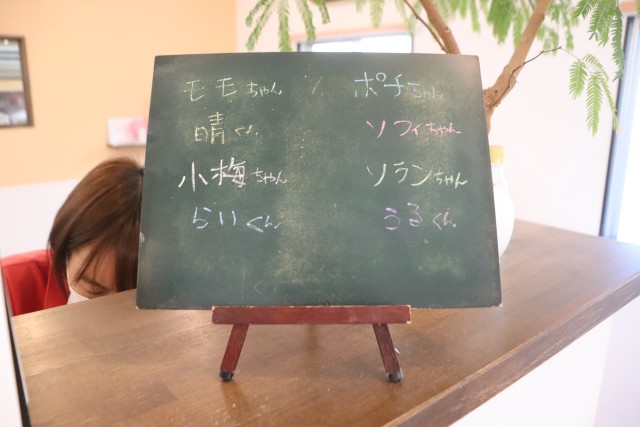 モモちゃん
晴くん
小梅ちゃん
らいくん
ポチちゃん
ソフィちゃん
ソランちゃん
うるくん